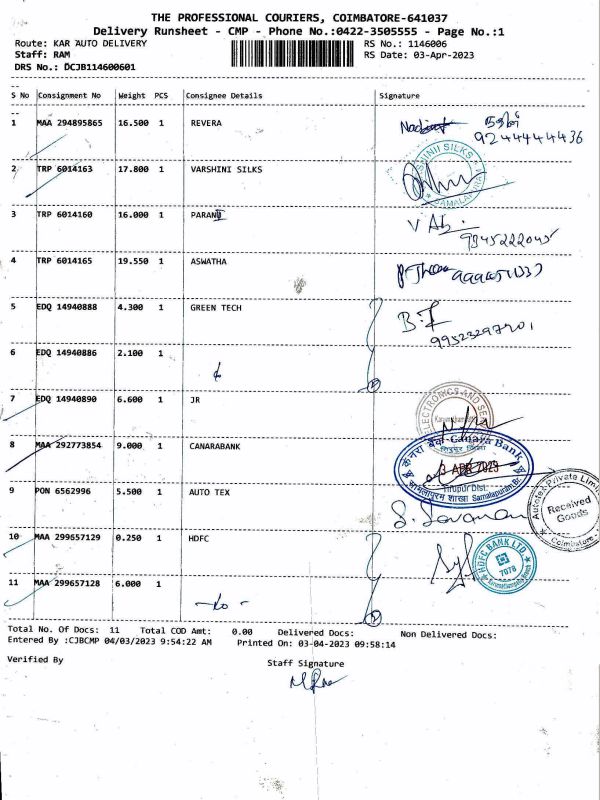 THE PROFESSIONAL COURIERS, COIMBATORE-641037
Delivery Runsheet - CMP - Phone No.:0422-3505555 - Page No.:1
Route: KAR AUTO DELIVERY RS No.: 1146006
Staff: RAM RS Date: 03-Apr-2023
DRS No.: DCJB114600601
S No Consignment No Weight PCS Consignee Details Signature
1 MAA 294895865 16.500 1 REVERA
9244444436
2 TRP 6014163 17.800 1 VARSHINI SILKS
SHINII SILKS
SAMALAPURAM
3 TRP 6014160 16.000 1 PARANI
9945222045
4 TRP 6014165 19.550 1 ASWATHA
5 EDQ 14940888 4.300 1 GREEN TECH
6 EDQ 14940886 2.100 1
7 EDQ 14940890 6.600 1 JR
ELECTRONICS AND
8 MAA 292773854 9.000 1 CANARABANK
केनरा बैंक Canara Bank
3 APR 2023
Tirupur Dist.
शाखा Samalapuram
9 PON 6562996 5.500 1 AUTO TEX
S. Saravanan
Autotex Private Limi
Received
Goods
Coimbatore
10 MAA 299657129 0.250 1 HDFC
HDFC BANK LTD.
7078
11 MAA 299657128 6.000 1
-do-
Total No. Of Docs: 11 Total COD Amt: 0.00 Delivered Docs: Non Delivered Docs:
Entered By :CJBCMP 04/03/2023 9:54:22 AM Printed On: 03-04-2023 09:58:14
Verified By Staff Signature